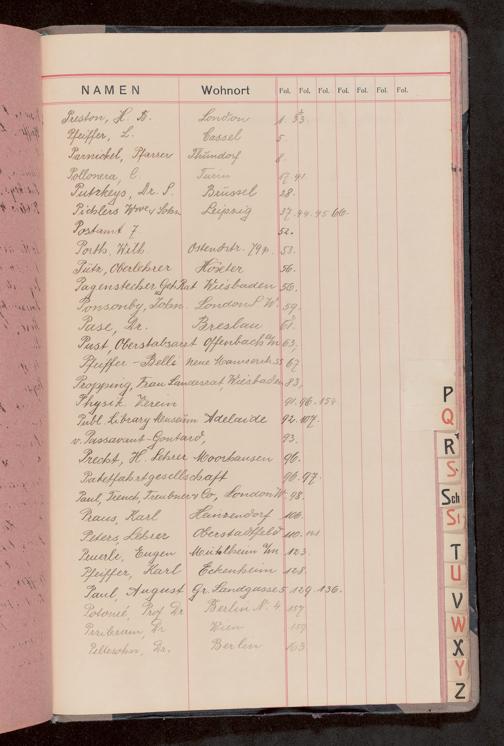 NAMEN Wohnort Fol. Fol. Fol. Fol. Fol. Fol. Fol.
Preston, H. B. London 1. 33
Pfeiffer, L. Cassel 5.
Parnickel, Pfarrer Thundorf 8.
Pollonera, C. Turin 17. 41
Putzkeys, Dr. S. Brüssel 28.
Pichlers Wwe & Sohn Leipzig 37. 44. 45 66.
Postamt 7 52.
Porth, Wilh. Ostendstr. 53.
Pütz, Oberlehrer Höxter 56.
Pagenstecher, Geh. Rat Wiesbaden 56.
Ponsonby, John. London S. W. 59.
Pase, Dr. Breslau 61.
Pust, Oberstabsarzt Offenbach a/M 63.
Pfeiffer - Belli Neue 67
Propping, Frau Landesrat, Wiesbaden 83.
Physik. Verein 91. 96. 154
Publ. Library Museum Adelaide 92. 107.
v. Passavant-Gontard, 93.
Precht, H. Lehrer Moorhausen 96.
Paketfahrtgesellschaft 96. 97.
Paul, Trench, Treubner & Co, London W. 98.
Praus, Karl Heinzendorf 106.
Peters, Lehrer Oberstadtfeld 110.
Peuerle, Eugen Mühlheim a/M 123.
Pfeiffer, Karl Eckenheim 128.
Paul, August Gr. Landgasse 5. 129. 136.
Potonié, Prof. Dr. Berlin N. 4. 157
Perribram, Dr. Wien 159
Peltesohn, Dr. Berlin 163
P
Q
R
S
Sch
St
T
U
V
W
X
Y
Z